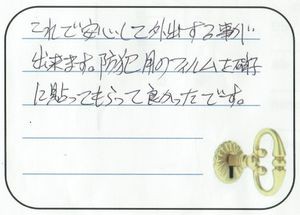 これで安心して外出する事が
出来ます。防犯用のフィルムを硝子
に貼ってもらって良かったです。